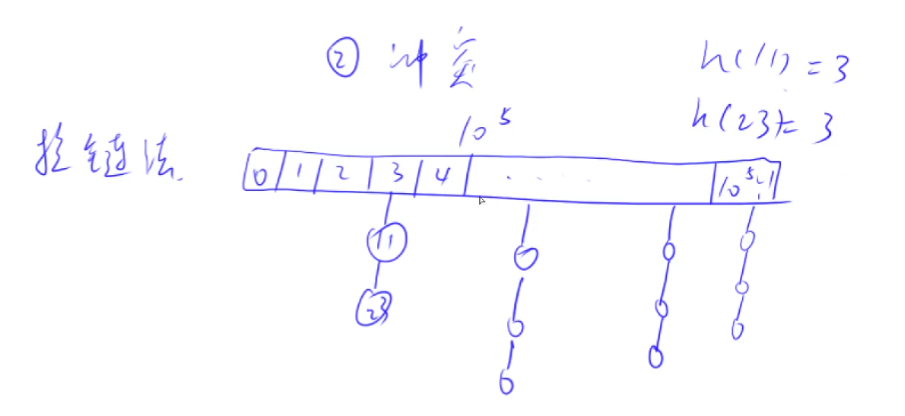 ② 冲突
h(11) = 3
h(23) = 3
10^5
拉链法.
0 1 2 3 4 . . . . 10^5-1
11
23